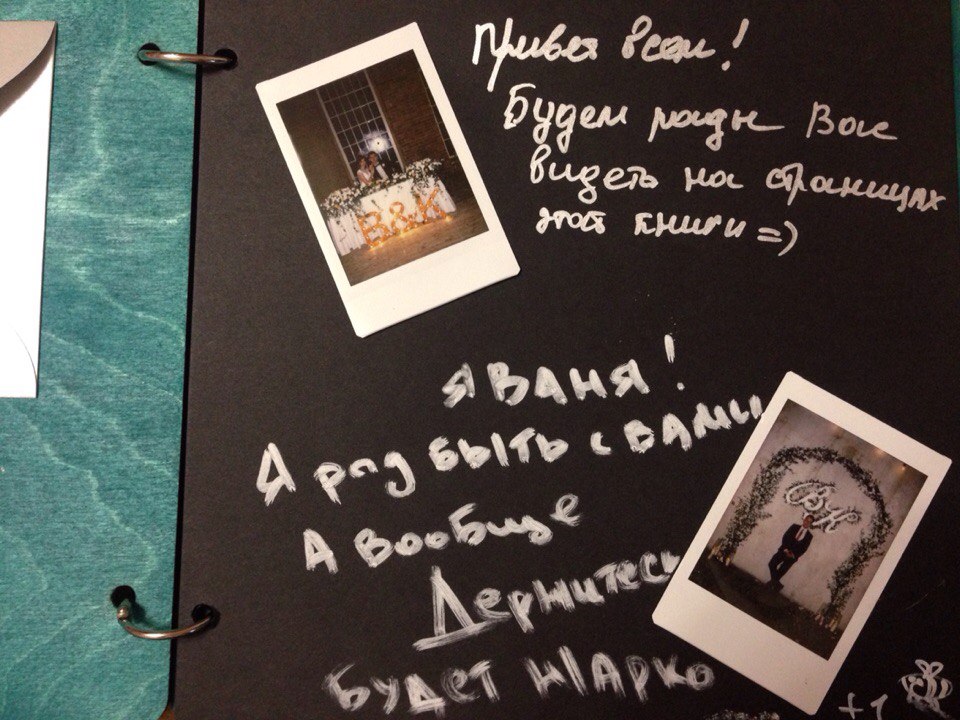 Привет всем!
Будем рады Вас
видеть на страницах
этой книги =)
B&K
Я ВАНЯ!
Я рад БЫТЬ с ВАМИ
А вообще
Держитесь
Будет жарко
B&K
+1